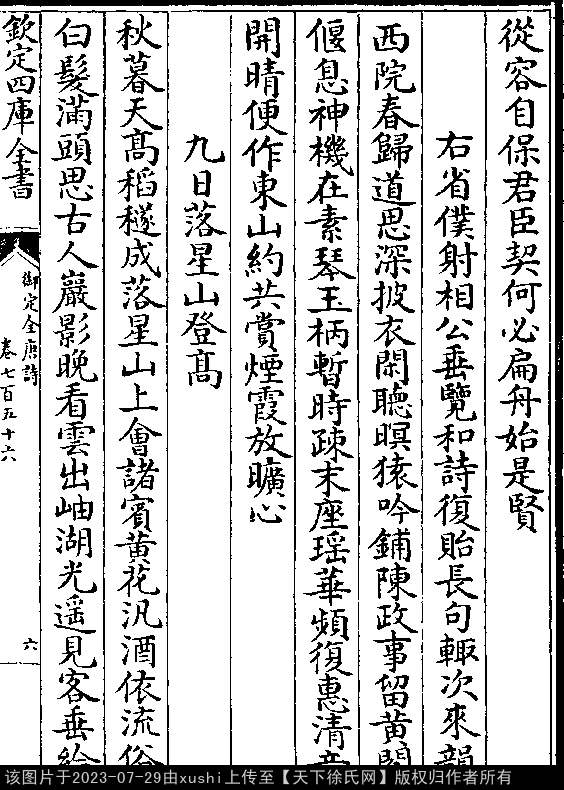 從容自保君臣契何必扁舟始是賢
右省僕射相公垂覽和詩復貽長句輙次來韻
西院春歸道思深披衣閑聽暝猿吟鋪陳政事留黄閣
偃息神機在素琴玉柄暫時疎末座瑶華頻復惠清音
開晴便作東山約共賞煙霞放曠心
九日落星山登髙
秋暮天髙稻穟成落星山上會諸賓黄花汎酒依流俗
白髮滿頭思古人巖影晚看雲出岫湖光遥見客垂綸
欽定四庫全書
御定全唐詩
卷七百五十六
六
该图片于2023-07-29由xushi上传至【天下徐氏网】版权归作者所有